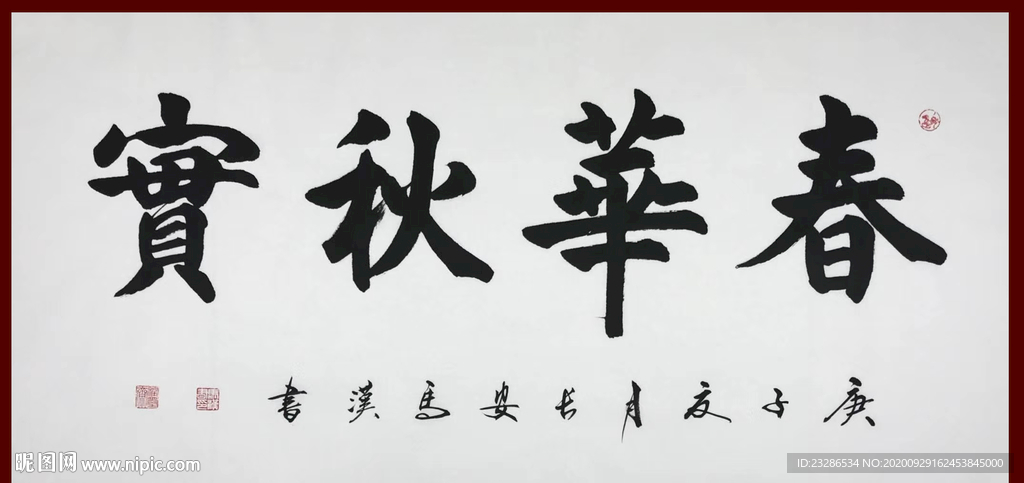 春華秋實
庚子夏月长安馬漢書
昵图网 www.nipic.com
ID:23286534 NO:20200929162453845000